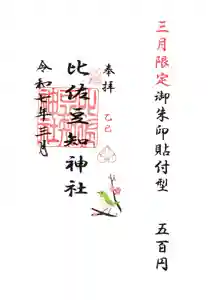 三月限定御朱印貼付型　五百円
奉拝
乙巳
比佐豆知神社
令和七年三月